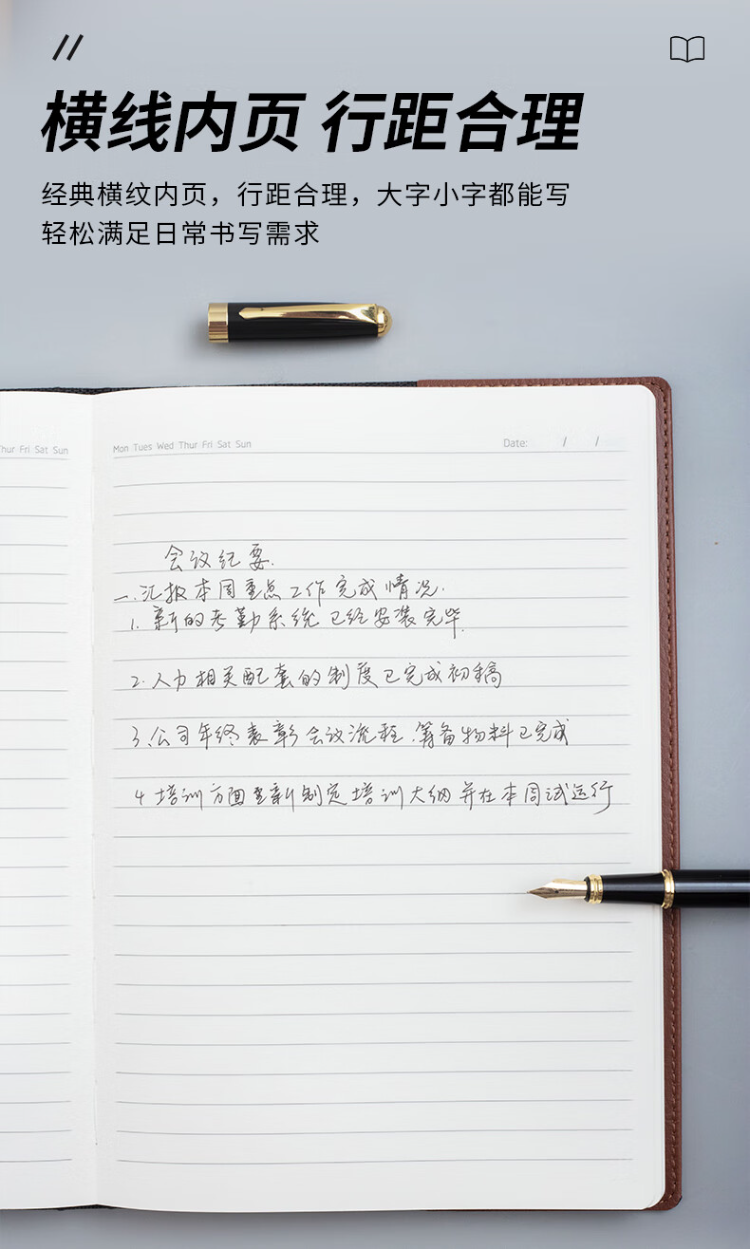 横线内页 行距合理
经典横纹内页，行距合理，大字小字都能写
轻松满足日常书写需求
Thur Fri Sat Sun
Mon Tues Wed Thur Fri Sat Sun
Date: / /
会议纪要.
一.汇报本周重点工作完成情况.
1. 新的考勤系统已经安装完毕.
2.人力相关配套的制度已完成初稿
3.公司年终表彰会议流程.筹备物料已完成
4 培训方面重新制定培训大纲并在本周试运行